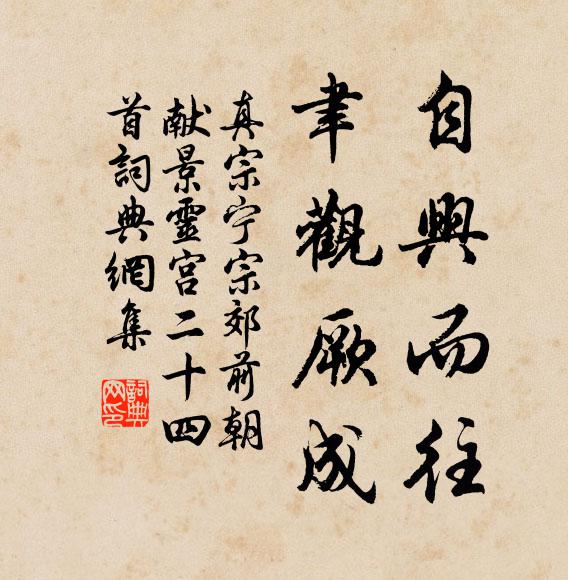 自興而往
聿觀厥成
真宗宁宗郊前朝
献景靈宮二十四
首詞典網集
詞典
网印